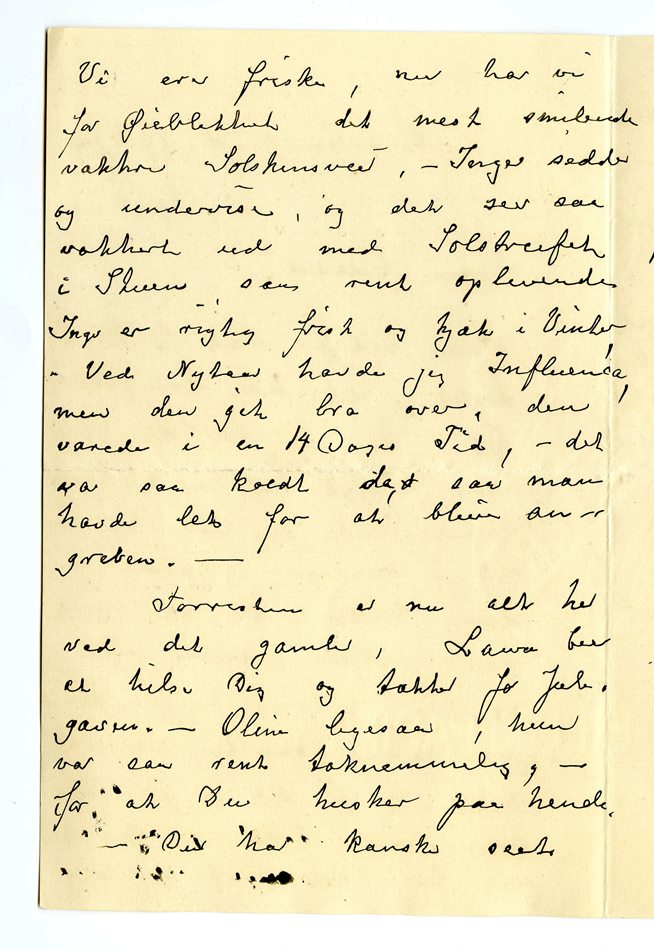 Vi ere friske, nu har vi
for Øieblikket det mest smilende
vakkre Solskinsveir, – Inga sidder
og underviser, og det ser saa
vakkert ud med Solstreifet
i Stuen saa rent oplivende
Inga er rigtig frisk og kjæk i Vinter,
– Ved Nytaar havde jeg Influenca,
men den gik bra over, den
varede i en 14 Dages Tid, – det
va saa koldt da, saa man
havde let for at blive an-
greben. —
Forresten er nu alt her
ved det gamle, Laura ber
at hilse Dig og takke for Jule-
gaven. – Oline ligesaa, hun
var saa rent taknemmelig, –
for at Du husker paa hende.
– Du har kanske seet